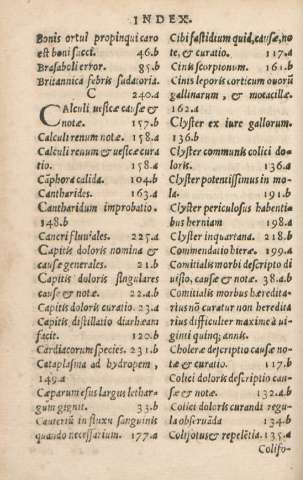 INDEX.
Bonis ortui propinqui caro
est boni succi. 46.b
Brasaboli error. 85.b
Britannica febris sudatoria.
C 240.a
CAlculi uesicæ causæ &
notæ. 157.b
Calculi renum notæ. 158.a
Calculi renum & uesicæ cura
tio. 158.a
Cāphora calida. 104.b
Cantharides. 163.a
Cantharidum improbatio.
148.b
Cancri fluuiales. 225.a
Capitis doloris nomina &
causæ generales. 21.b
Capitis doloris singulares
causæ & notæ. 22.a.b
Capitis doloris curatio. 23.a
Capitis distillatio diarhœam
facit. 120.b
Cardiacorum species. 231.b
Cataplasma ad hydropem,
149.a
Cæparum esus largus lethar-
gum gignit. 33.b
Cauteriū in fluxu sanguinis
quando necessarium. 177.a
Cibi fastidium quid, causæ, no
te, & curatio. 117.a
Cinis scorpionum. 161.b
Cinis leporis corticum ouorū
gallinarum, & motacillæ.
162.a
Clyster ex iure gallorum.
136.b
Clyster communis colici do-
loris. 136.a
Clyster potentissimus in mo-
la. 191.b
Clyster periculosus habenti-
bus herniam 198.a
Clyster in quartana. 218.b
Commendatio hieræ. 199.a
Comitialis morbi descriptio di
uisio, causæ & notæ. 38.a.b
Comitialis morbus hæredita-
rius nō curatur non heredita
rius difficulter maxime à ui-
ginti quinq; annis.
Choleræ descriptio causæ no-
tæ & curatio. 117.b
Colici doloris descriptio cau-
sæ & notæ. 132.a.b
Colici doloris curandi regu-
la obseruāda 134.b
Colifotus & repelētia. 135.a
Colifo-